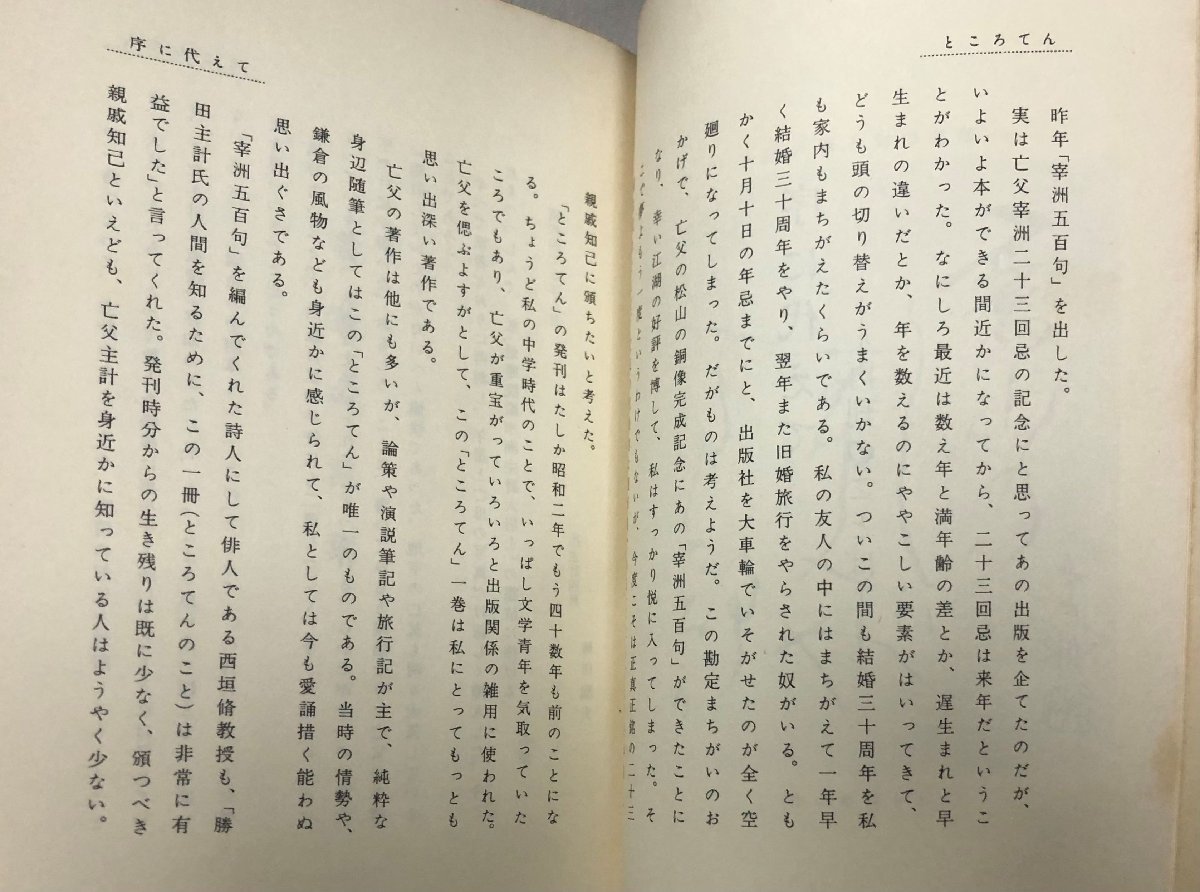 ところてん
昨年「宰洲五百句」を出した。
実は亡父宰洲二十三回忌の記念にと思ってあの出版を企てたのだが、
いよいよ本ができる間近かになってから、二十三回忌は来年だというこ
とがわかった。なにしろ最近は数え年と満年齢の差とか、遅生まれと早
生まれの違いだとか、年を数えるのにややこしい要素がはいってきて、
どうも頭の切り替えがうまくいかない。ついこの間も結婚三十周年を私
も家内もまちがえたくらいである。私の友人の中にはまちがえて一年早
く結婚三十周年をやり、翌年また旧婚旅行をやらされた奴がいる。とも
かく十月十日の年忌までにと、出版社を大車輪でいそがせたのが全く空
廻りになってしまった。だがものは考えようだ。この勘定まちがいのお
かげで、亡父の松山の銅像完成記念にあの「宰洲五百句」ができたことに
なり、幸い江湖の好評を博して、私はすっかり悦に入ってしまった。そ
こで夢よもう一度というわけでもないが、今度こそは正真正銘の二十三
序に代えて
親戚知己に頒ちたいと考えた。
「ところてん」の発刊はたしか昭和二年でもう四十数年も前のことにな
る。ちょうど私の中学時代のことで、いっぱし文学青年を気取っていた
ころでもあり、亡父が重宝がっていろいろと出版関係の雑用に使われた。
亡父を偲ぶよすがとして、この「ところてん」一巻は私にとってもっとも
思い出深い著作である。
亡父の著作は他にも多いが、論策や演説筆記や旅行記が主で、純粋な
身辺随筆としてはこの「ところてん」が唯一のものである。当時の情勢や、
鎌倉の風物なども身近かに感じられて、私としては今も愛誦措く能わぬ
思い出ぐさである。
「宰洲五百句」を編んでくれた詩人にして俳人である西垣脩教授も、「勝
田主計氏の人間を知るために、この一冊(ところてんのこと)は非常に有
益でした」と言ってくれた。発刊時分からの生き残りは既に少なく、頒つべき
親戚知己といえども、亡父主計を身近かに知っている人はようやく少ない。